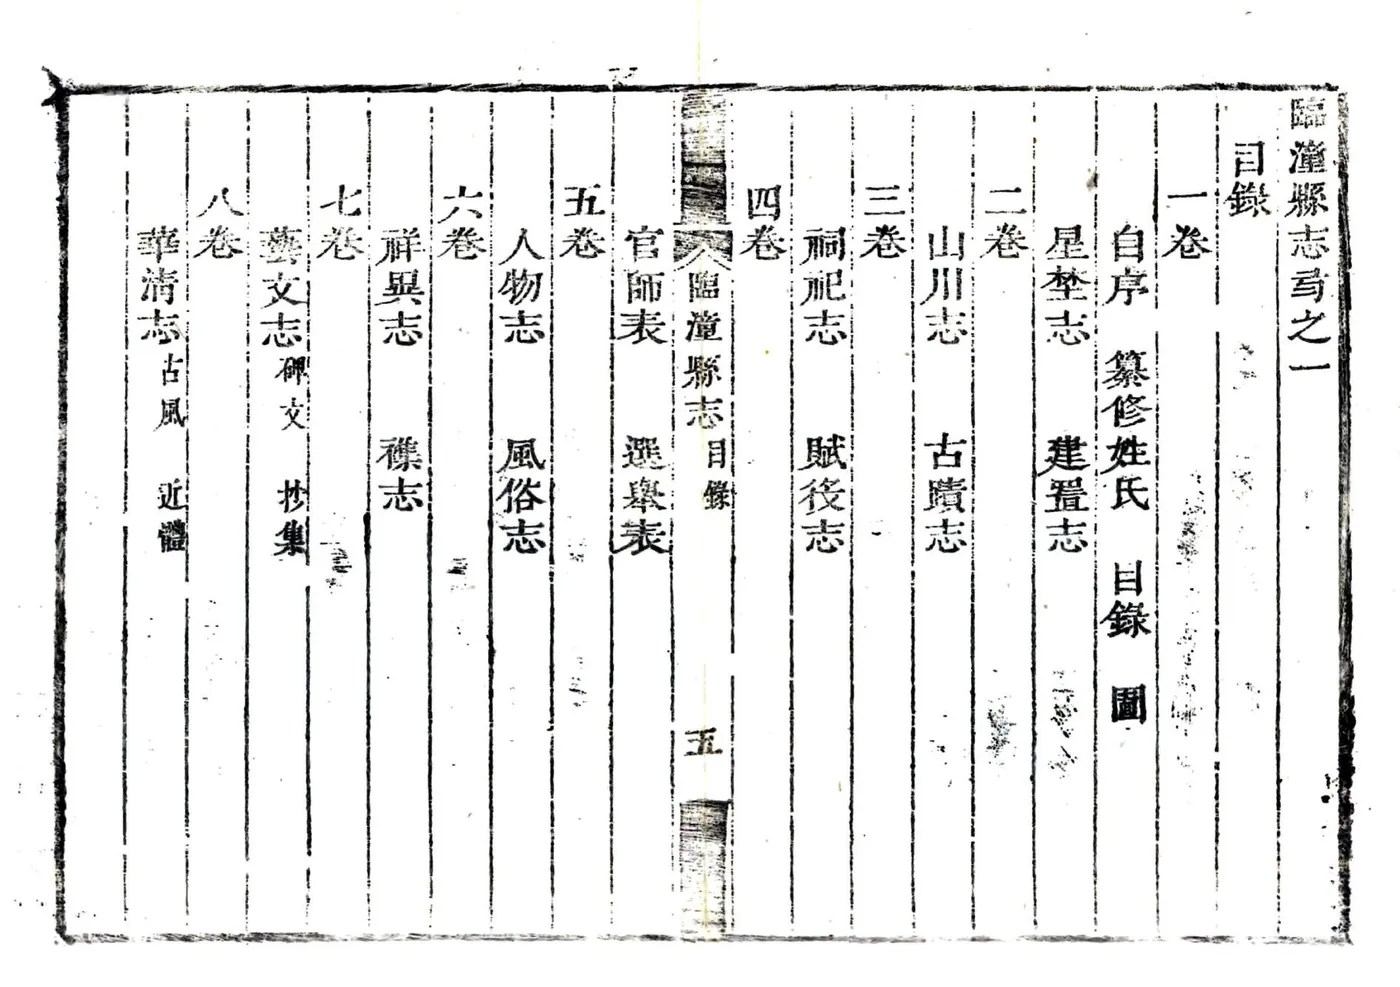 臨潼縣志弓之一
目錄
一卷
自序　纂修姓氏　目錄　圖
星埜志　建置志
二卷
山川志　古蹟志
三卷
祠祀志　賦役志
四卷
臨潼縣志　目錄　五
官師表　選舉表
五卷
人物志　風俗志
六卷
祥異志　襍志
七卷
藝文志　碑文　抄集
八卷
華清志　古風　近體